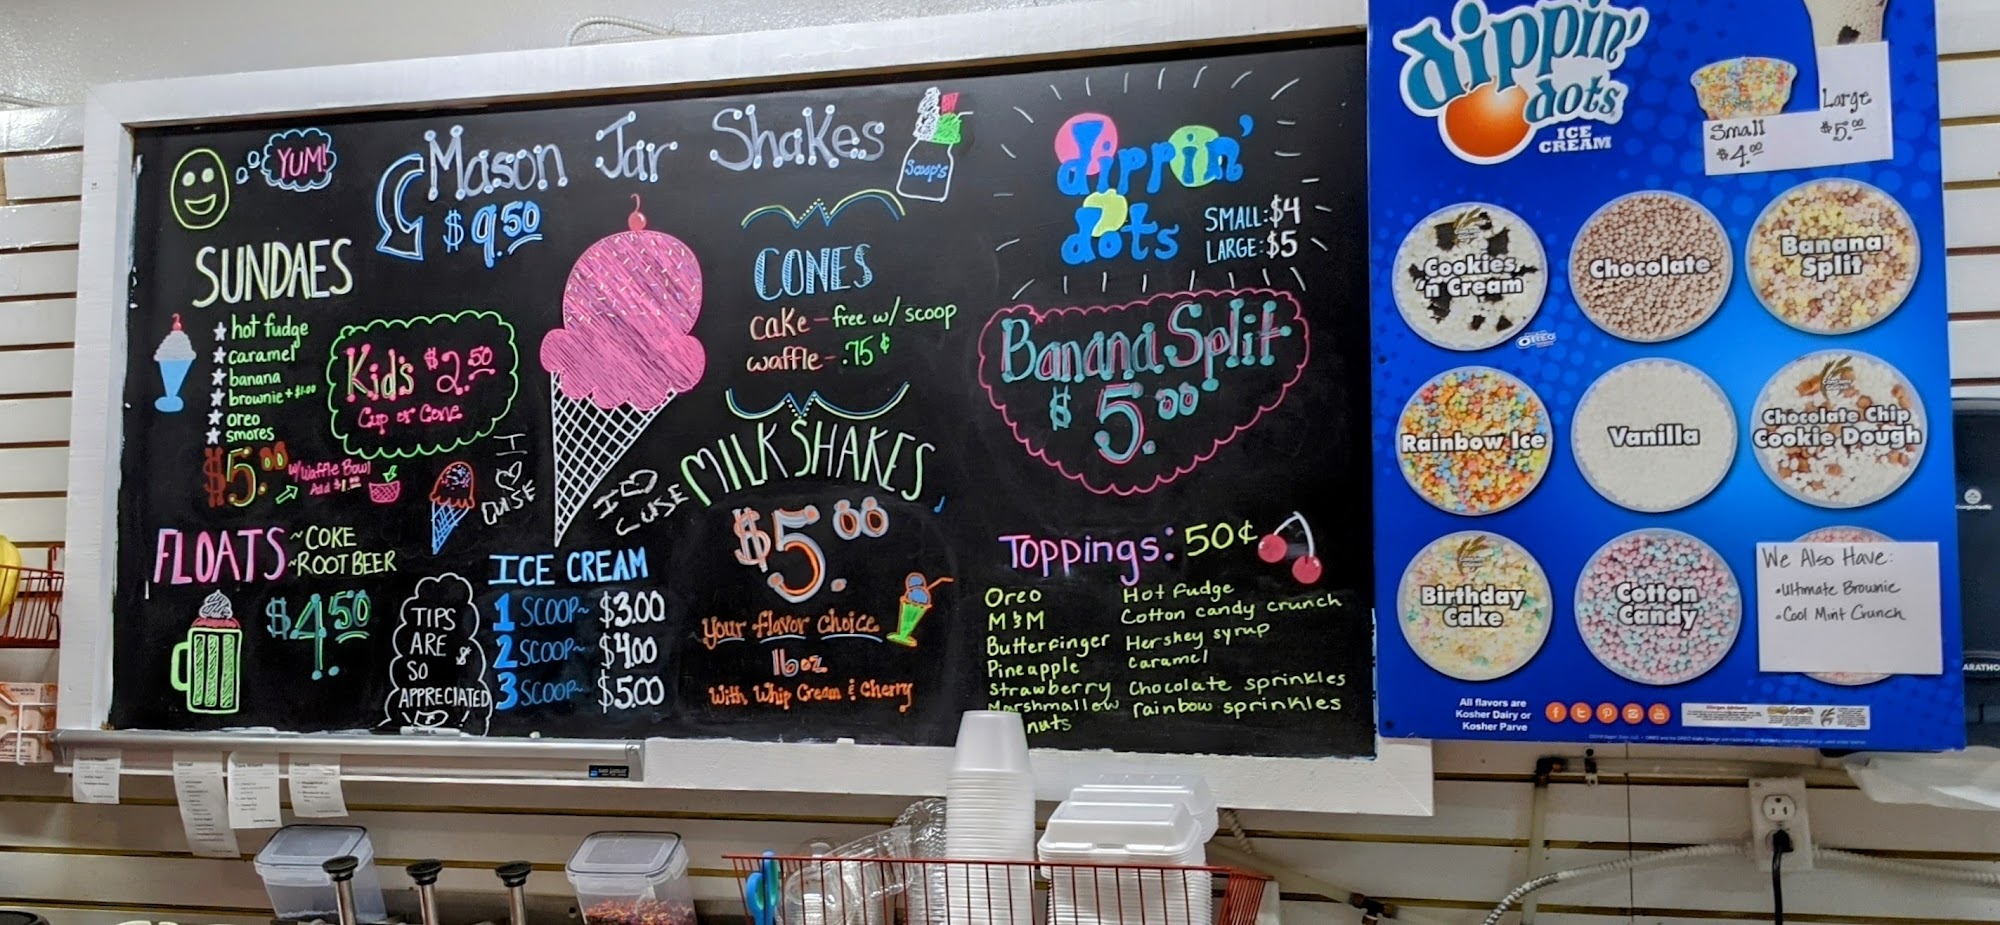 YUM!
Mason Jar Shakes
$9.50
Scoop's
SUNDAES
hot fudge
caramel
banana
brownie +$1.00
oreo
smores
$5.00
w/ Waffle Bowl
Add $1.00
Kid's $2.50
Cup or Cone
FLOATS
~COKE
~ROOT BEER
$4.50
TIPS
ARE
SO
APPRECIATED
I
I
ICE CREAM
1 SCOOP~ $3.00
2 SCOOP~ $4.00
3 SCOOP~ $5.00
CONES
cake - free w/ scoop
waffle - .75¢
MILKSHAKES
$5.00
Your flavor choice
16oz
With Whip Cream & Cherry
dippin'
dots
SMALL: $4
LARGE: $5
Banana Split
$5.00
Toppings: 50¢
Oreo
M&M
Butterfinger
Pineapple
Strawberry
Marshmallow
nuts
Hot Fudge
Cotton candy crunch
Hershey syrup
caramel
Chocolate sprinkles
rainbow sprinkles
dippin'
dots
ICE
CREAM
Small
$4.00
Large
$5.00
Cookies
'n Cream
OREO
Chocolate
Banana
Split
Rainbow Ice
Vanilla
Chocolate Chip
Cookie Dough
Birthday
Cake
Cotton
Candy
We Also Have:
•Ultimate Brownie
•Cool Mint Crunch
All flavors are
Kosher Dairy or
Kosher Parve